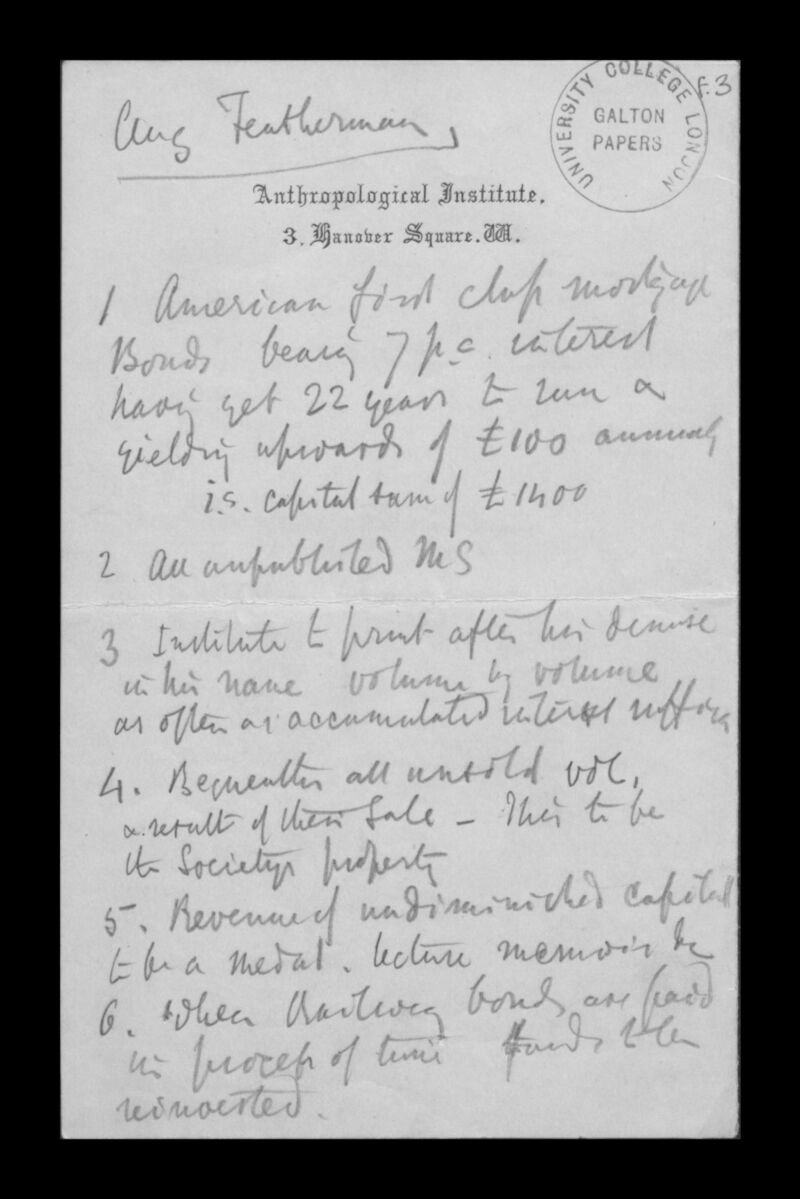 f.3
UNIVERSITY COLLEGE LONDON
GALTON
PAPERS
Aug Featherman,
Anthropological Institute,
3, Hanover Square. W.
1 American first class mortgage
Bonds bearing 7 p.c. interest
having yet 22 years to run &
yielding upwards of £100 annually
i.e. capital sum of £1400
2 An unpublished MS
3 Institute to print after his demise
in his name volume by volume
as often as accumulated interest suffices
4. Bequeaths all unsold vol,
& result of their Sale - This to be
the Society's property
5. Revenue of undiminished capital
to be a medal. lecture memoir &c
6. When Railway bonds are paid
in process of time funds to be
reinvested.